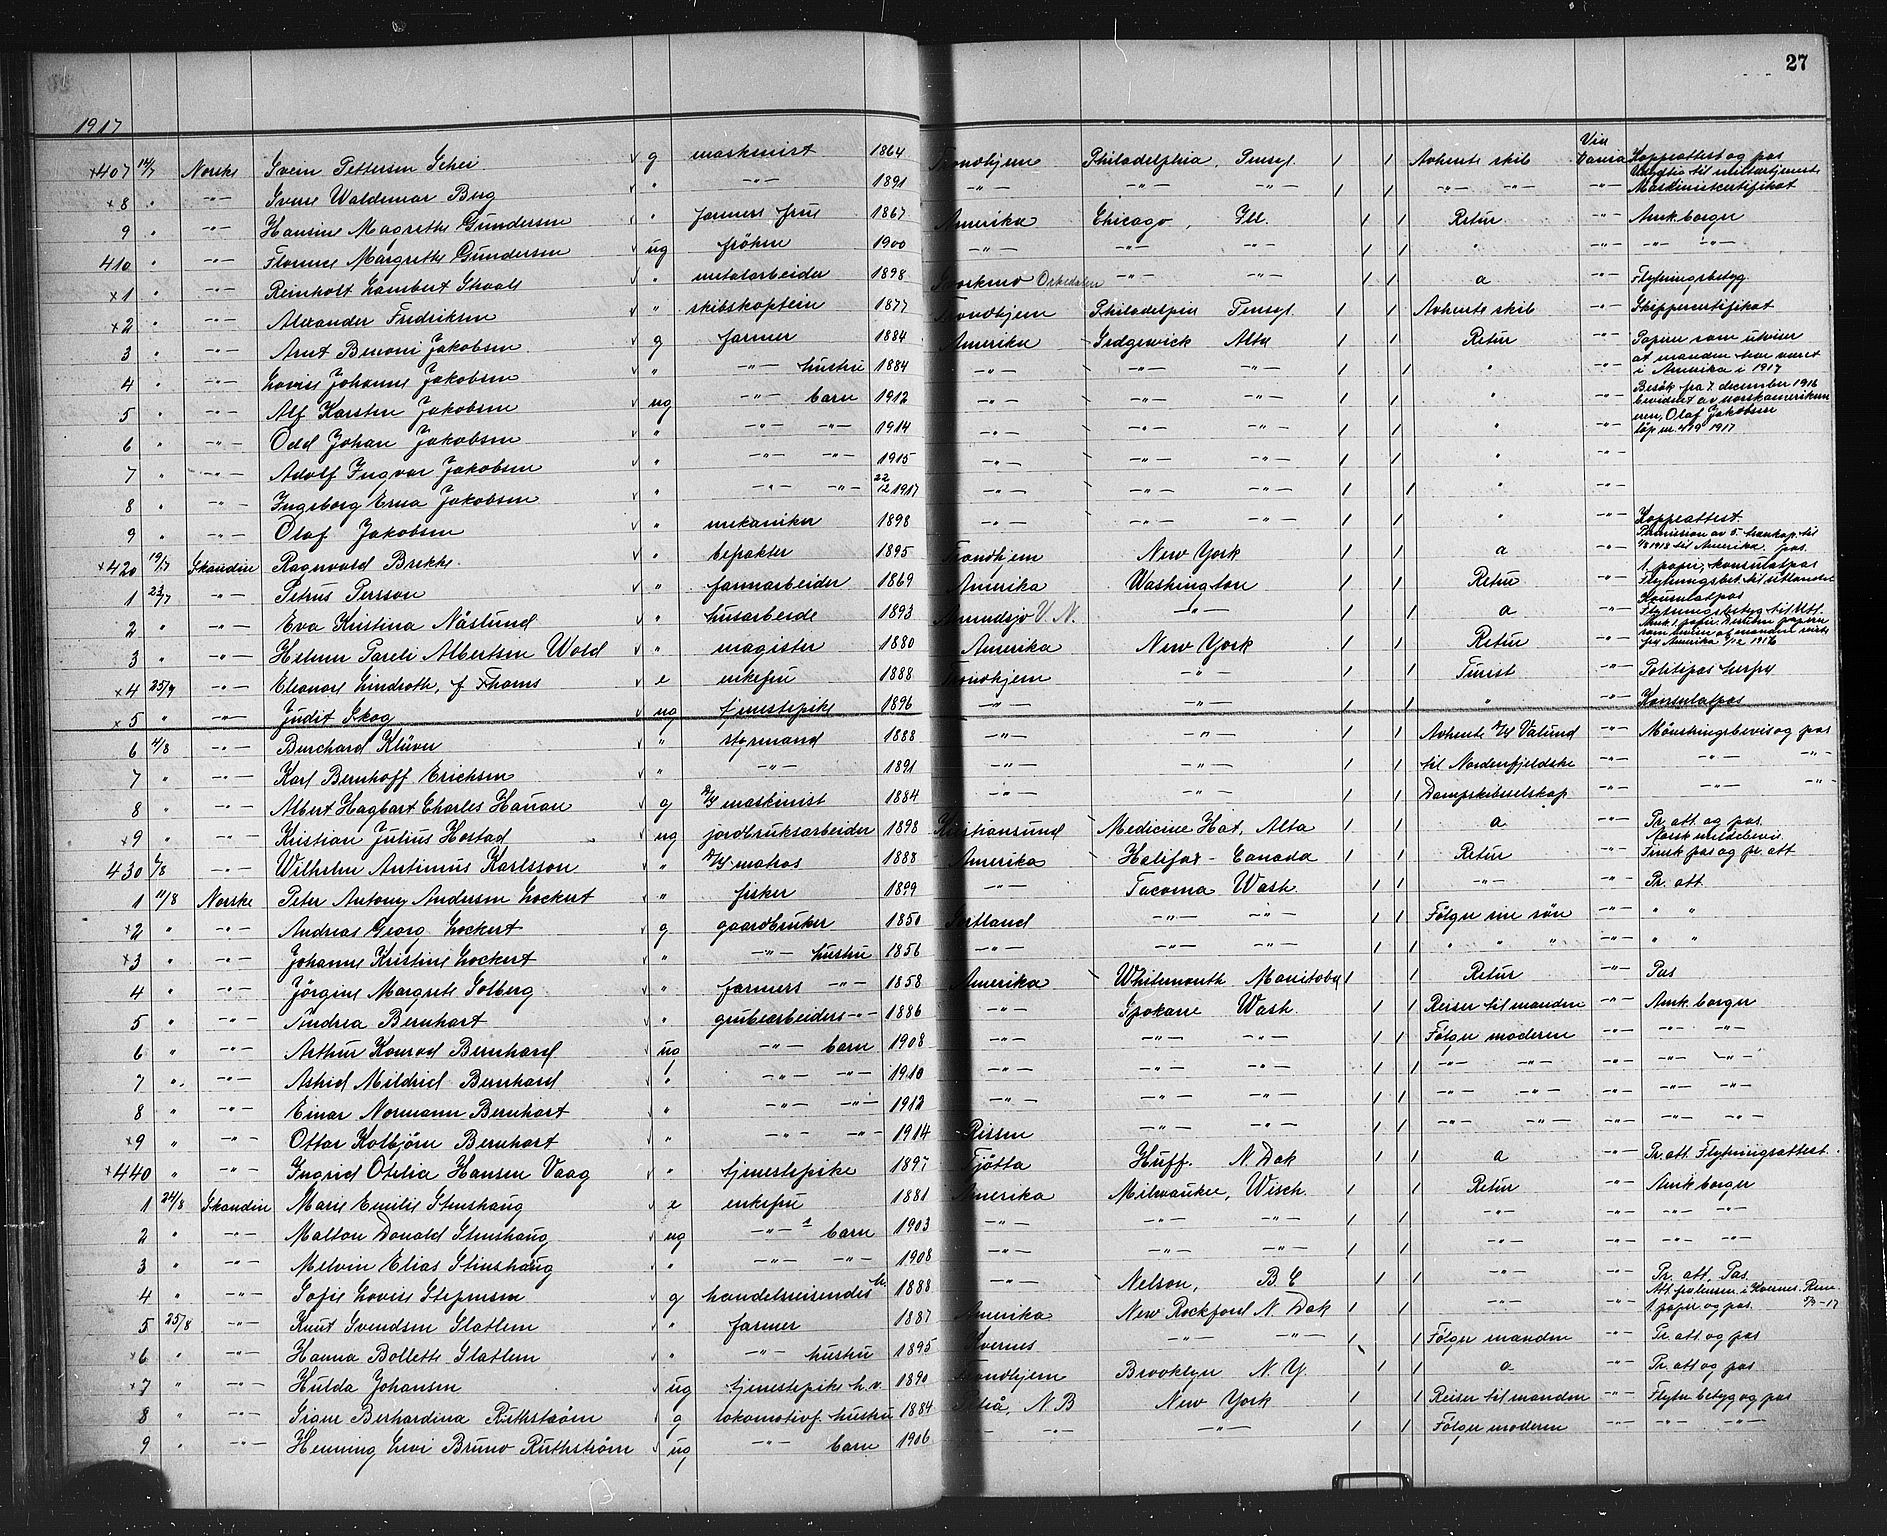 27
1917
Via
×407 14/7 Norske Svein Pettersen Scher g maskinist 1864 Trondhjem Philadelphia, Pensyl. Avhente skib Vausia Koppeattest og pas
×8 " -"- Sverre Waldemar Berg " -"- 1891 -"- -"- -"- -"- -"- Maskinistcertifikat
9 " -"- Hansine Magrethe Gundersen " farmers frue 1867 Amerika Chicago, Ill. Retur -"- Amk. borger
410 " -"- Florence Margrethe Gundersen ug frøken 1900 -"- -"- -"- " -"- -"- -"-
×1 " -"- Reinholt Lambert Skaals " metalarbeider 1898 Orkedalen -"- -"- a -"- Flytningsbetyg
×2 " -"- Alexander Fredriksen " skibskaptein 1877 Trondhjem Philadelpia Pensyl. Avhente skib -"- Skippercertifikat
3 " -"- Arnt Benoni Jakobsen g farmer 1884 Amerika Sedgewick Alta Retur -"- Papirer som utviser
4 " -"- Lovise Johanne Jakobsen " -"- hustru 1884 -"- -"- -"- " -"- at manden har været i Amerika i 1917
5 " -"- Alf Karsten Jakobsen ug -"- barn 1912 -"- -"- -"- " -"- Besøk fra 7 december 1916 bevidnet av norskamerikan
6 " -"- Odd Johan Jakobsen " -"- -"- 1914 -"- -"- -"- " -"- eren, Olaf Jakobsen løp nr. 419 1917
7 " -"- Adolf Ingvar Jakobsen " -"- -"- 1915 -"- -"- -"- " -"-
8 " -"- Ingeborg Erna Jakobsen " -"- -"- 22/12 1917 -"- -"- -"- " -"-
9 " -"- Olaf Jakobsen " mekaniker 1898 -"- -"- -"- " -"- Koppeattest.
×420 19/7 Skandin Ragnvald Brekke " befrakter 1895 Trondhjem New York a -"- 1/8 1918 til Amerika. pas.
1 23/7 -"- Petrus Persson " farmarbeider 1869 Amerika Washington Retur -"- 1 papir, konsulatpas
2 " -"- Eva Kristina Näslund " husarbeide 1893 V. N. -"- a -"- Flytningsbet. til utlandet Konsulatpas
3 " -"- Helmer Tareli Albertsen Wold " magister 1880 Amerika New York Retur -"- fra Amerika 9/12 1916
×4 25/7 -"- Eleanore Lindroth, f. Thams e enkefru 1888 Trondhjem -"- Turist -"- Politipas herfra
×5 " -"- Judit Skog ug tjenestepike 1896 -"- -"- " -"- Konsulatpas
6 4/8 -"- Burchard Klüver " styrmand 1888 -"- -"- Avhente D/S Vålund -"- Mønstringsbevis og pas
7 " -"- Karl Bernhoff Erichsen " -"- 1891 -"- -"- til Nordenfjeldske -"- -"- -"-
8 " -"- Albert Hagbart Charles Hauan g D/S maskinist 1884 -"- -"- Dampskibsselskap -"- -"- -"-
×9 " -"- Kristian Julius Hostad ug jordbruksarbeider 1898 Kristiansund Medicine Hat, Alta a -"- Pr. att. og pas.
430 6/8 -"- Wilhelm Antimus Karlsson " D/S matros 1888 Amerika Halifax - Canada Retur -"- Finsk pas og pr. att
1 11/8 Norske Peter Antony Andersen Lockert " fisker 1899 -"- Tacoma Wash -"- -"- Pr. att
×2 " -"- Andreas Georg Lockert g gaardbruker 1850 Sortland -"- -"- Følger sin søn -"- " "
×3 " -"- Johanne Kristine Lockert " -"- hustru 1856 -"- -"- -"- " " " -"- " "
4 " -"- Jørgine Margrete Solberg " farmers -"- 1858 Amerika Whitemouth Manitoba Retur -"- Pas
5 " -"- Andrea Bernhart " grubearbeiders -"- 1886 -"- Spokane Wash Reiser til manden -"- Amk. borger
6 " -"- Arthur Konrad Bernhard ug -"- barn 1908 -"- -"- -"- Følger moderen -"- -"- -"-
7 " -"- Astrid Mildrid Bernhard " -"- -"- 1910 -"- -"- -"- -"- -"- -"- -"- -"-
8 " -"- Einar Normann Bernhart " -"- -"- 1912 -"- -"- -"- -"- -"- -"- -"- -"-
×9 " -"- Ottar Kolbjørn Bernhart " -"- -"- 1914 Rissen -"- -"- -"- -"- -"- -"- -"-
×440 " -"- Ingrid Otelia Hansen Vaag " tjenestepike 1897 Tjøtta Huff. N. Dak a -"- Pr. att. Flytningsattest
1 24/8 Skandin Marie Emilie Stenshaug e enkefru 1881 Amerika Milwaukee, Wisch. Retur -"- Amk borger
2 " -"- Malton Donald Stenshaug ug -"- s barn 1903 -"- -"- -"- -"- -"- -"- -"-
3 " -"- Melvin Elias Stenshaug " -"- -"- 1908 -"- -"- -"- -"- -"- -"- -"-
4 " -"- Sofie Lovise Stephensen g handelsreisendes h. 1888 -"- Nelson, B C -"- -"- Pr. att. Pas.
5 25/8 -"- Knut Svendsen Slatlem " farmer 1887 Amerika New Rockford N Dak -"- -"- 1 papir og pas.
×6 " -"- Hanna Bollette Slatlem " -"- hustru 1895 Kvernes -"- -"- Følger manden -"- Pr. att og pas
×7 " -"- Hulda Johansen ug tjenestepike h.v. 1890 Trondhjem Brooklyn N. Y. a -"- Pr. att og pas
8 " -"- Signe Berhardina Ruthstrøm g lokomotivf. hustru 1884 Piteå, N B New York Reiser til manden -"- Flytn betyg og pas
9 " -"- Henning Levi Bruno Ruthstrøm ug -"- barn 1906 -"- -"- -"- Følger moderen -"- -"- -"-